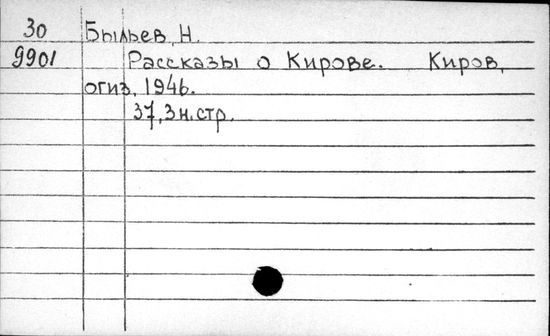 30 Быльев, Н.
9901 Рассказы о Кирове. Киров,
огиз, 1946.
37, 3 н. стр.